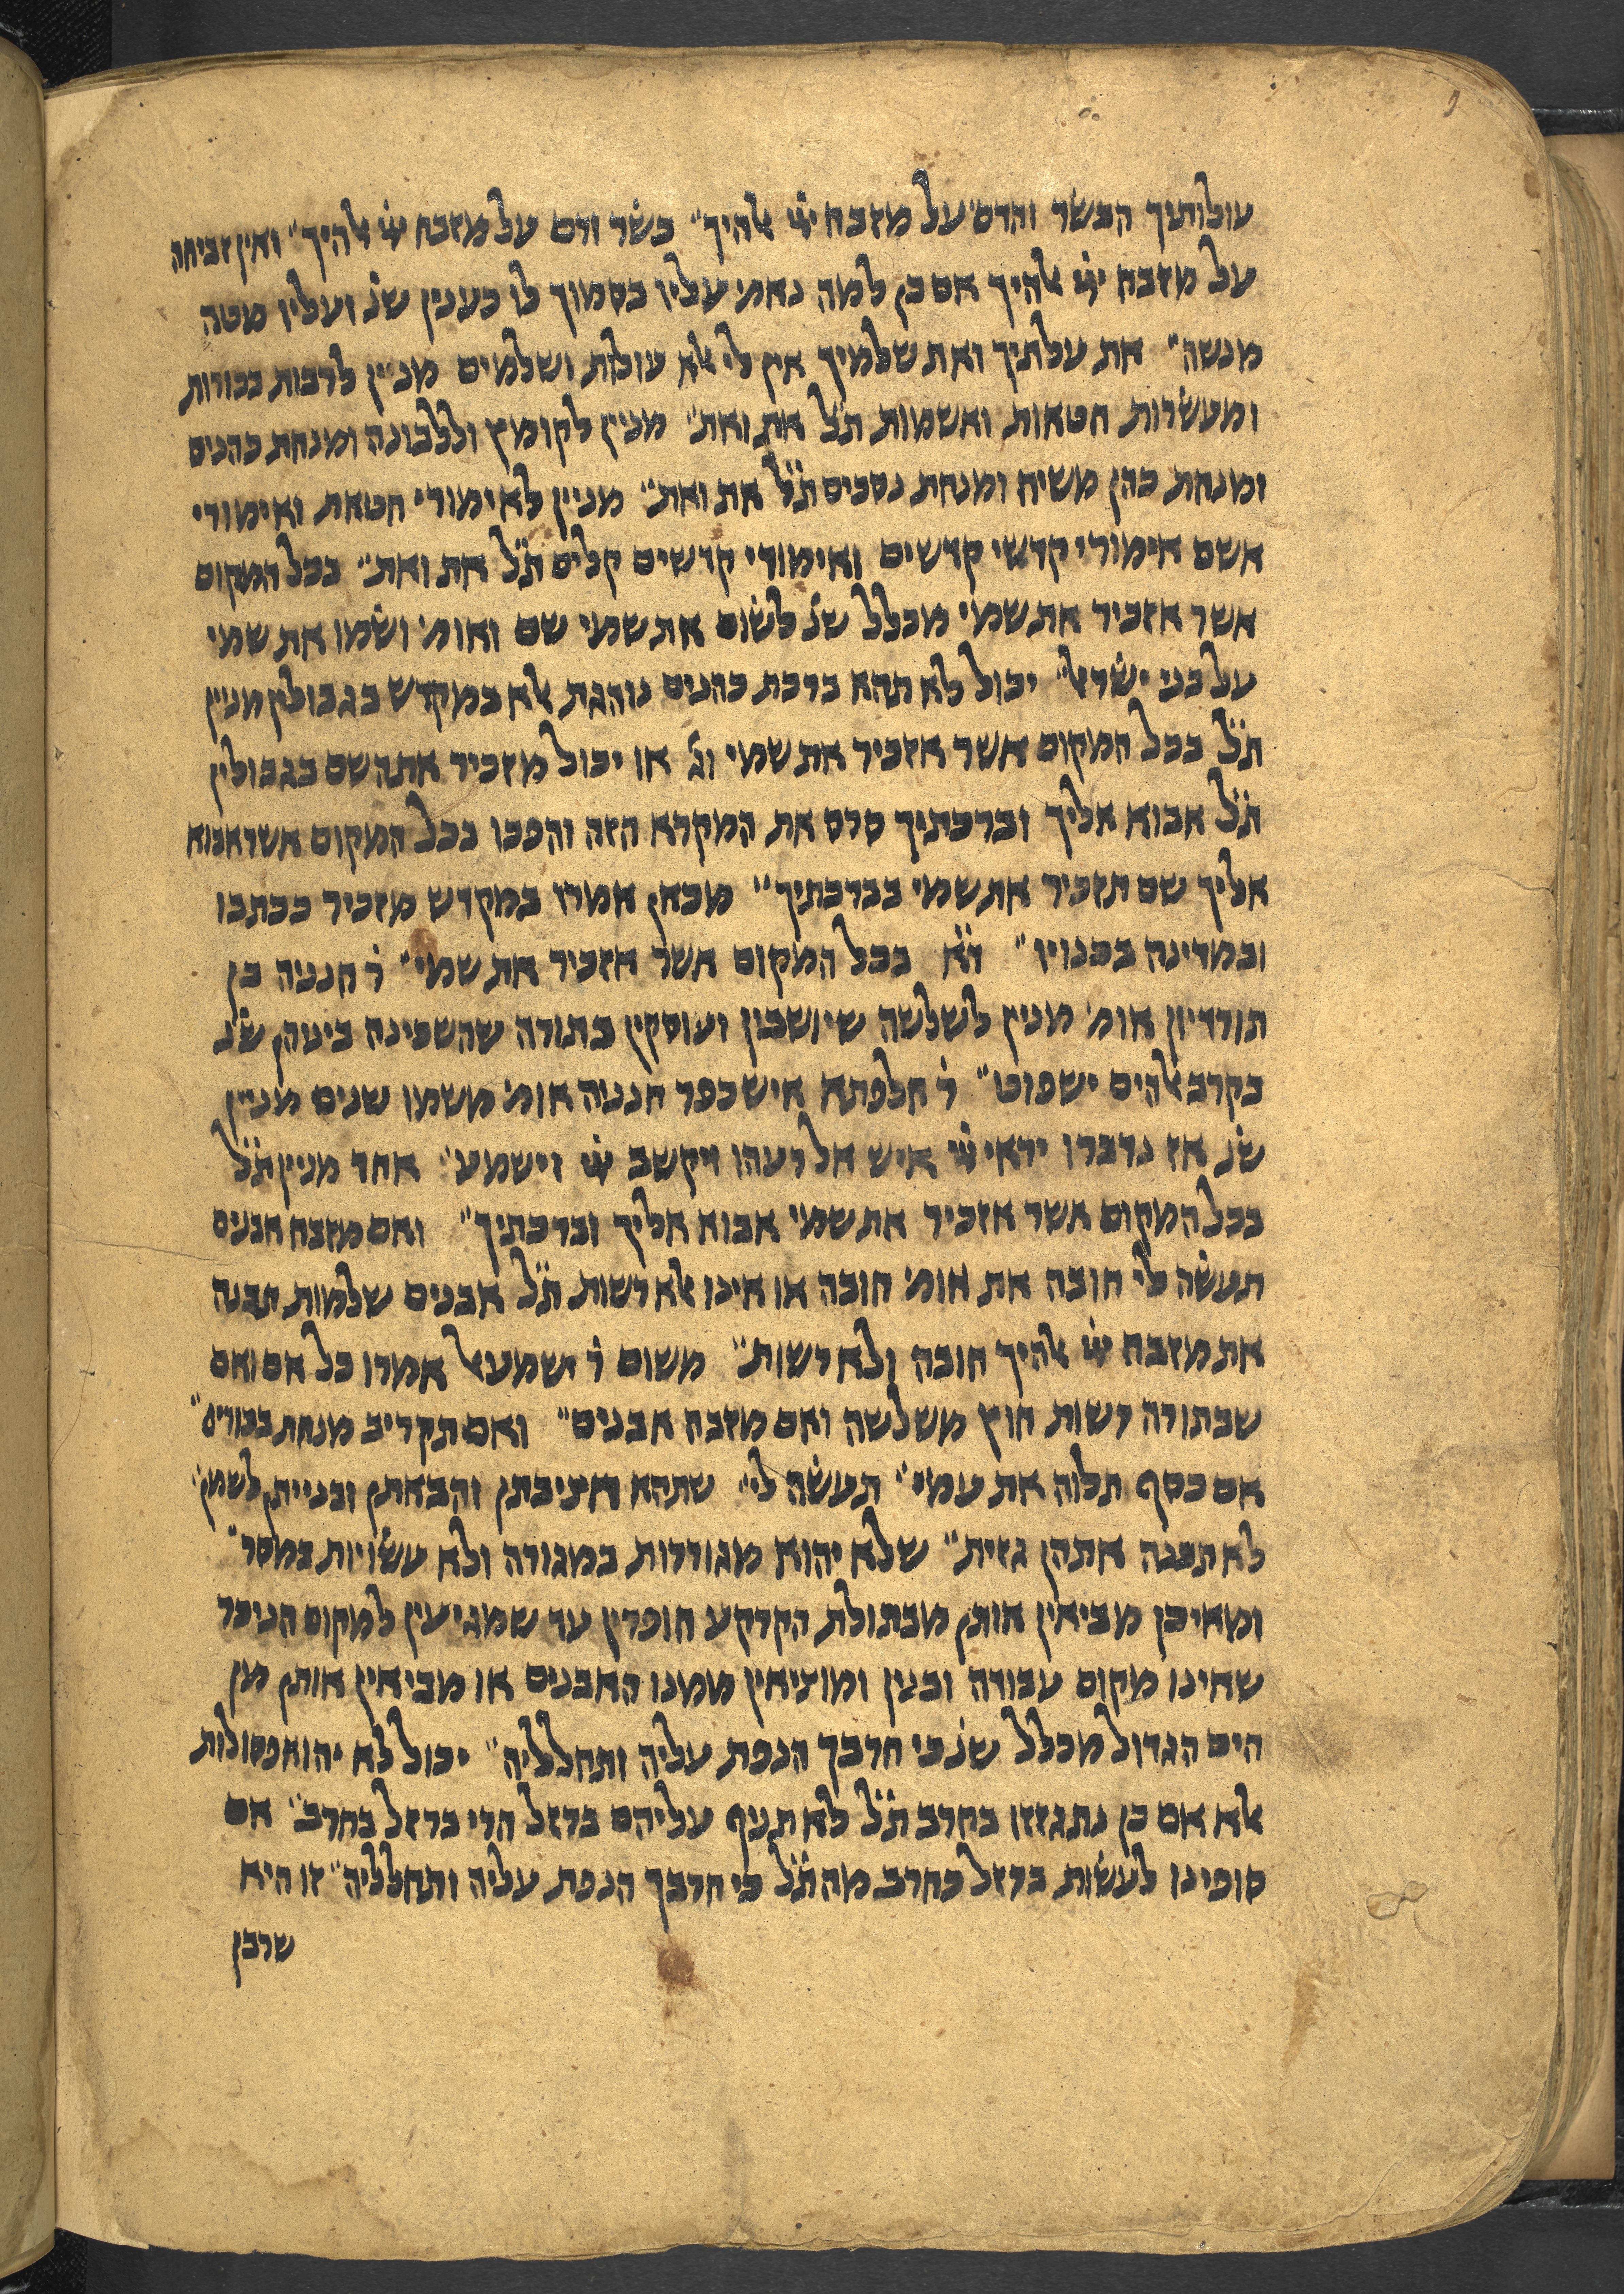 עולותיך הבשר והדם על מזבח ייי אלהיך״ בשר ודם על מזבח ייי אלהיך״ ואין זביחה
על מזבח ייי אלהיך אם כן למה נאמ׳ עליו בסמוך לו כענין שנ׳ ועליו מטה
מנשה״ את עלתיך ואת שלמיך אין לי אלא עולות ושלמים מניין לרבות בכורות
ומעשרות חטאות ואשמות ת״ל את ואת״ מנין לקומץ וללבונה ומנחת כהנים
ומנחת כהן משיח ומנחת נסכים ת״ל את ואת״ מניין לאימורי חטאת ואימורי
אשם אימורי קדשי קדשים ואימורי קדשים קלים ת״ל את ואת״ בכל המקום
אשר אזכיר את שמי מכלל שנ׳ לשום את שמי שם ואומ׳ ושמו את שמי
על בני ישראל״ יכול לא תהא ברכת כהנים נוהגת אלא במקדש בגבולין מנין
ת״ל בכל המקום אשר אזכיר את שמי וג׳ או יכול מזכיר את השם בגבולין
ת״ל אבוא אליך וברכתיך סרס את המקרא הזה והפכו בכל המקום אשר אבוא
אליך שם תזכיר את שמי בברכתיך״ מכאן אמרו במקדש מזכיר ככתבו
ובמדינה בכנויו״ ד״א בכל המקום אשר אזכיר את שמי״ ר׳ חנניה בן
תורדיון אומ׳ מנין לשלשה שיושבין ועוסקין בתורה שהשכינה ביניהן שנ׳
בקרב אלהים ישפוט״ ר׳ חלפתא איש כפר חנניה אומ׳ משמו שנים מניין
שנ׳ אז נדברו יראי ייי איש אל רעהו ויקשב ייי וישמע״ אחד מנין ת״ל
בכל המקום אשר אזכיר את שמי אבוא אליך וברכתיך״ ואם מזבח אבנים
תעשה לי חובה את אומ׳ חובה או אינו אלא רשות ת״ל אבנים שלמות תבנה
את מזבח ייי אלהיך חובה ולא רשות״ משום ר׳ ישמעאל אמרו כל אם ואם
שבתורה רשות חוץ משלשה ואם מזבח אבנים״ ואם תקריב מנחת בכורים״
אם כסף תלוה את עמי״ תעשה לי״ שתהא חציבתן והבאתן ובנייתן לשמי״
לא תבנה אתהן גזית״ שלא יהוא מגוררות במגורה ולא עשויות במסר״
ומאיכן מביאין אותן מבתולת הקרקע חופרין עד שמגיעין למקום הניכר
שאינו מקום עבודה ובנין ומוציאין ממנו האבנים או מביאין אותן מן
הים הגדול מכלל שנ׳ כי חרבך הנפת עליה ותחלליה״ יכול לא יהוא פסולות
אלא אם כן נתגזזו בחרב ת״ל לא תניף עליהם ברזל הרי ברזל כחרב״ אם
סופינו לעשות ברזל כחרב מה ת״ל כי חרבך הנפת עליה ותחלליה״ זו היא
שרבן